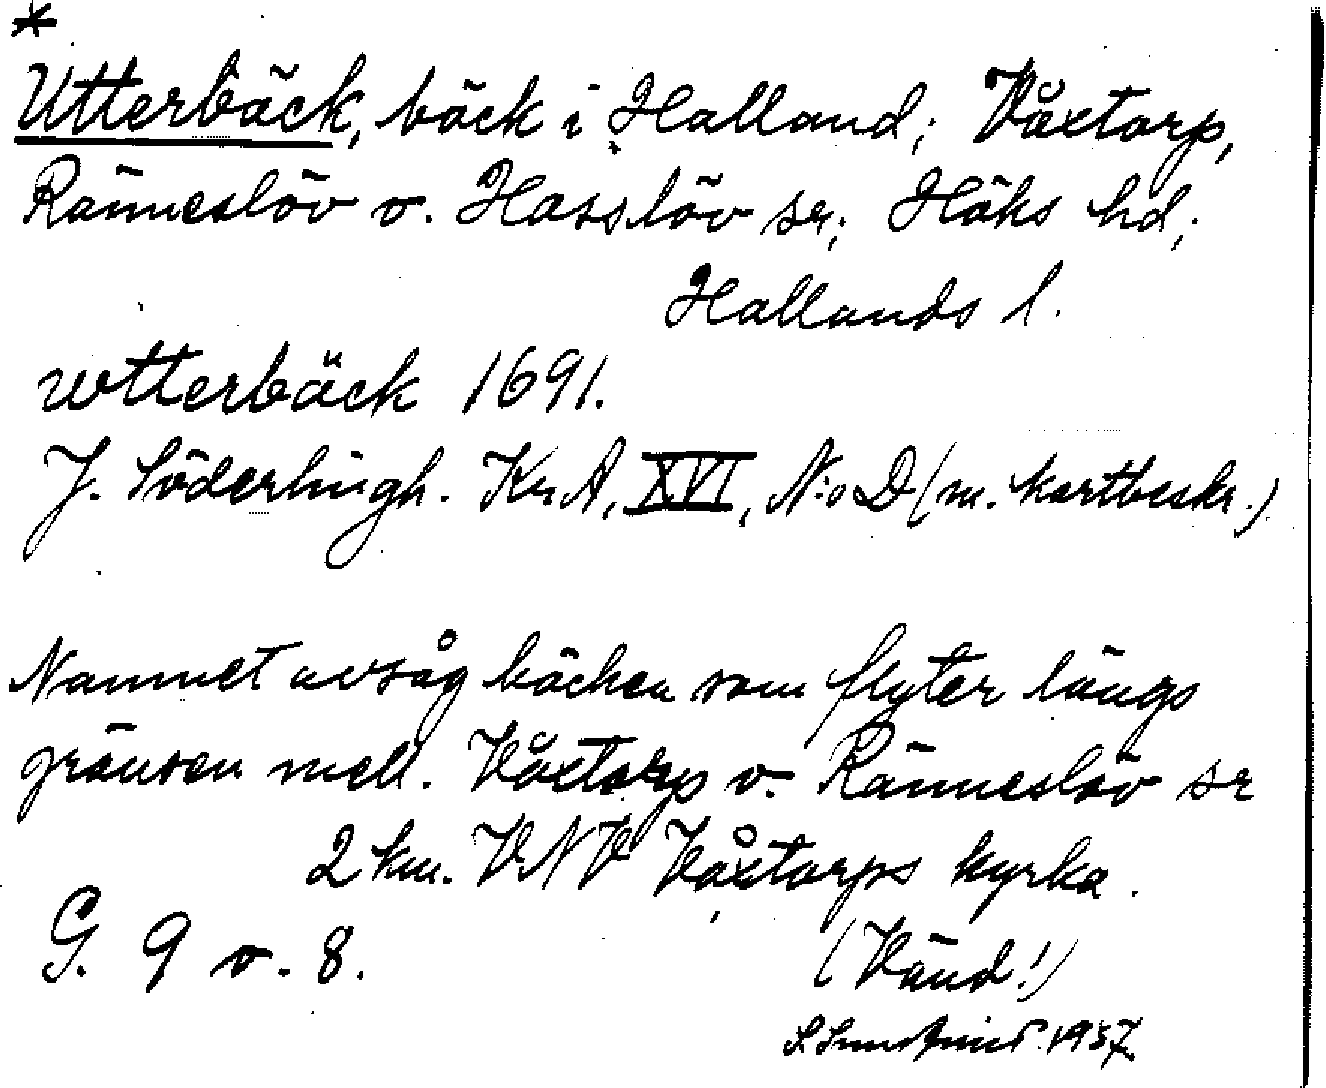 *
Utterbäck, bäck i Halland; Våxtorp,
Ränneslöv o. Hasslöv sr; Höks hd;
Hallands l.
utterbäck 1691.
J. Söderlingh. Kr.A, XVI, N:o D (m. kartbeskr.)
Namnet avsåg bäcken som flyter längs
gränsen mell. Våxtorp o. Ränneslöv sr
2 km. VNV Våxtorps kyrka.
G. 9 o. 8.
(Vänd!)
1937.